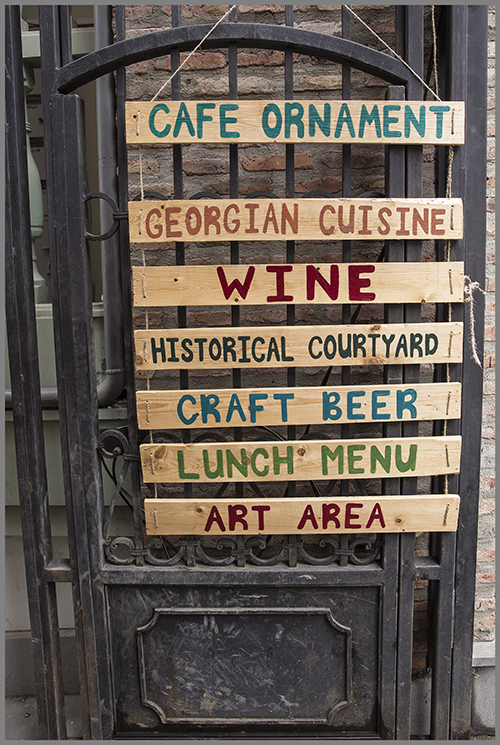 CAFE ORNAMENT
GEORGIAN CUISINE
WINE
HISTORICAL COURTYARD
CRAFT BEER
LUNCH MENU
ART AREA